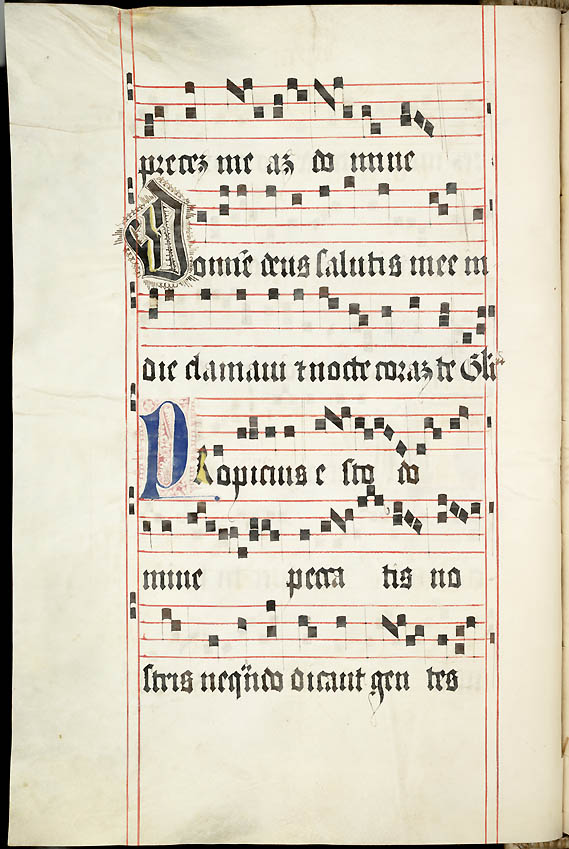 precez me az do mine
Domīe deus salutis mee in
die clamaui ⁊ nocte coraz te Gli
PRopicius e sto do
mine pecca tis no
stris neqn̄do dicant gen tes